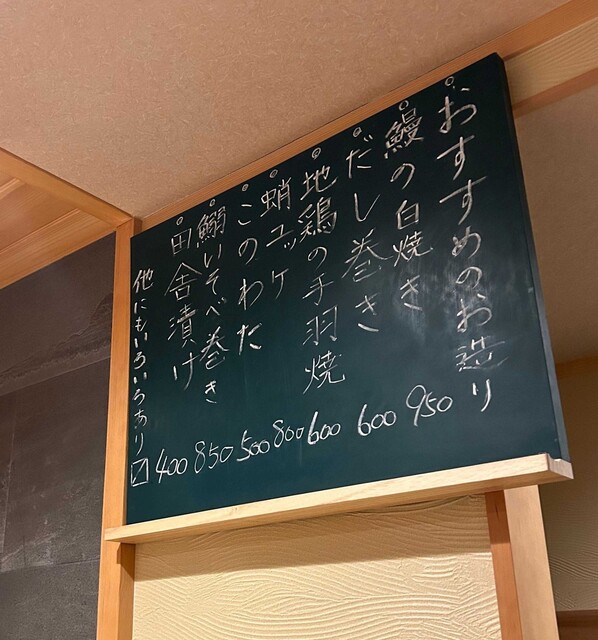 ○おすすめのお造り
○鰻の白焼き 950
○だし巻き 600
○地鶏の手羽焼 600
○蛸ユッケ 800
○このわた 500
○鰯いそべ巻き 850
○田舎漬け 400
他にもいろいろあり〼